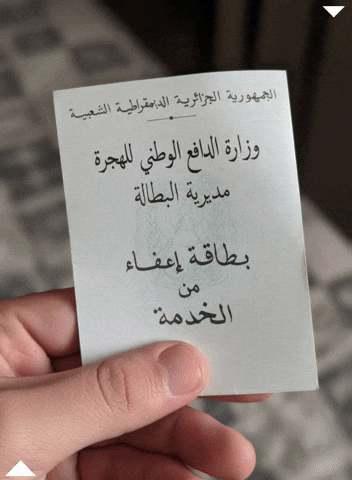 الجمهورية الجزائرية الديمقراطية الشعبية
وزارة الدافع الوطني للهجرة
مديرية البطالة
بطاقة إعفاء
من
الخدمة